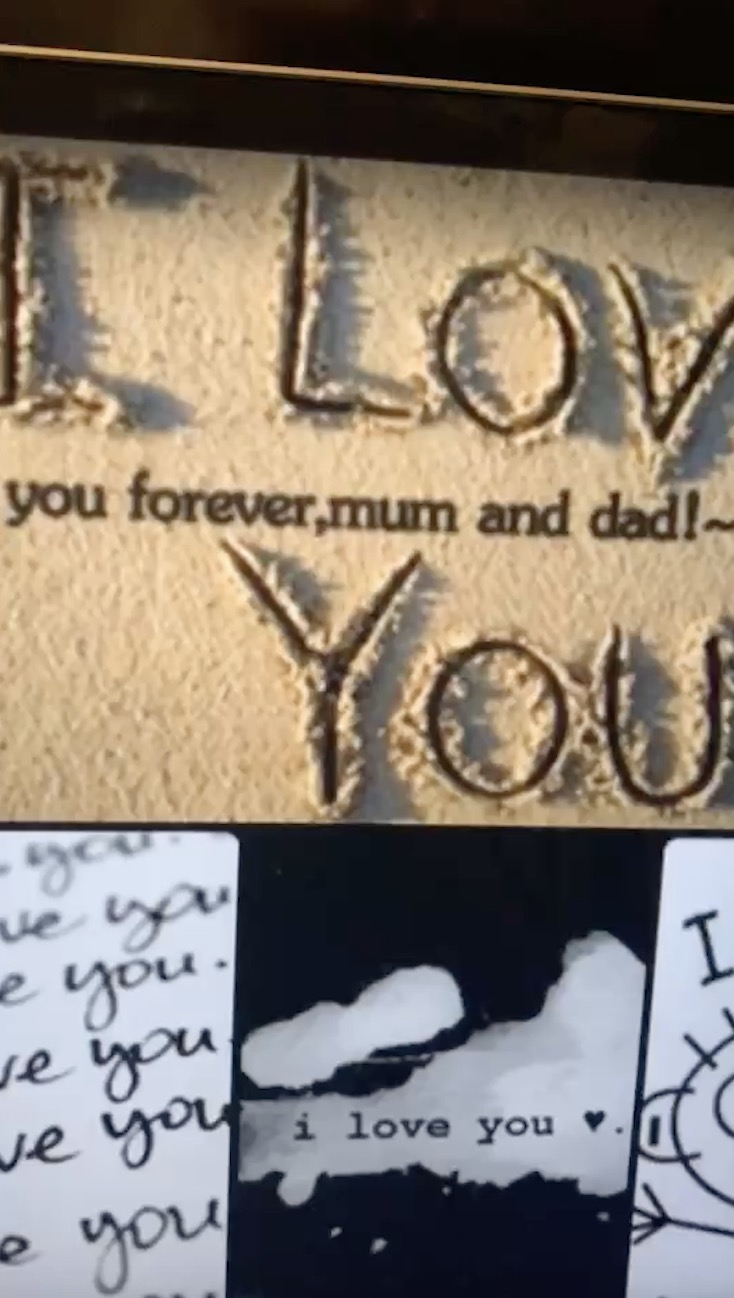 I Lov
you forever,mum and dad!~
You
you.
ve you
e you.
ve you
ve you
e you
i love you ♥.
I